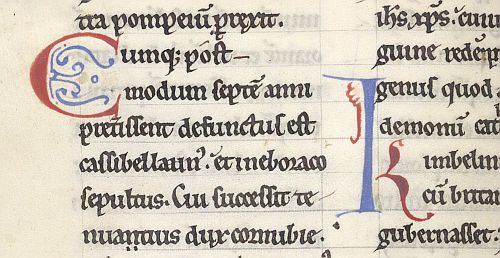 tra pompeiũ p̱rexit.
Cumq; post–
modum septẽ anni
pret̃issent defunctus est
cassibellaun᾽. et in eboraco
sepultus. Cui successit te
nuantius dux cornubie.
ih̅s xp̅s.
guine redẽp
Igenus quod
demoniũ cap
Kimbelin
cũ britan
gubernasset.